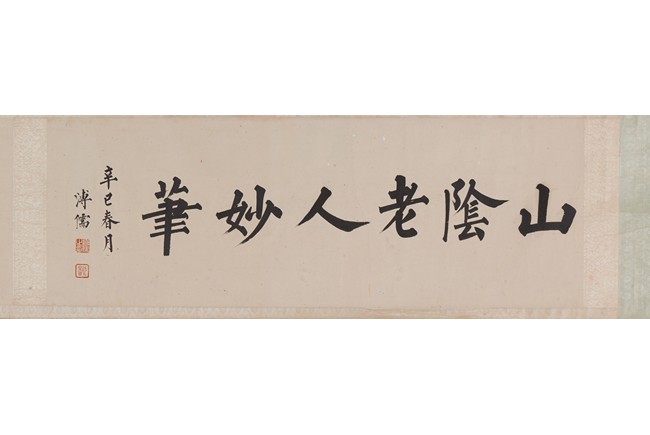 山陰老人妙筆
辛巳春月
溥儒